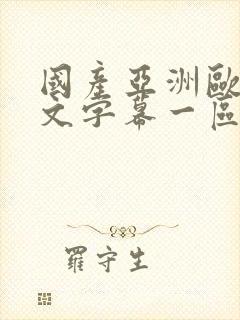 國產亞洲歐
文字幕一區
羅守生